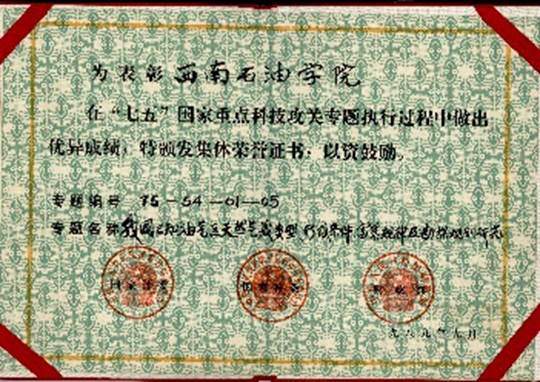 为表彰西南石油学院
在“七五”国家重点科技攻关专题执行过程中做出
优异成绩，特颁发集体荣誉证书，以资鼓励。
专题编号 75-54-01-05
专题名称 我国 油气区天然气藏类型 形成条件 富集规律及勘探 研究
国家计委
财政部